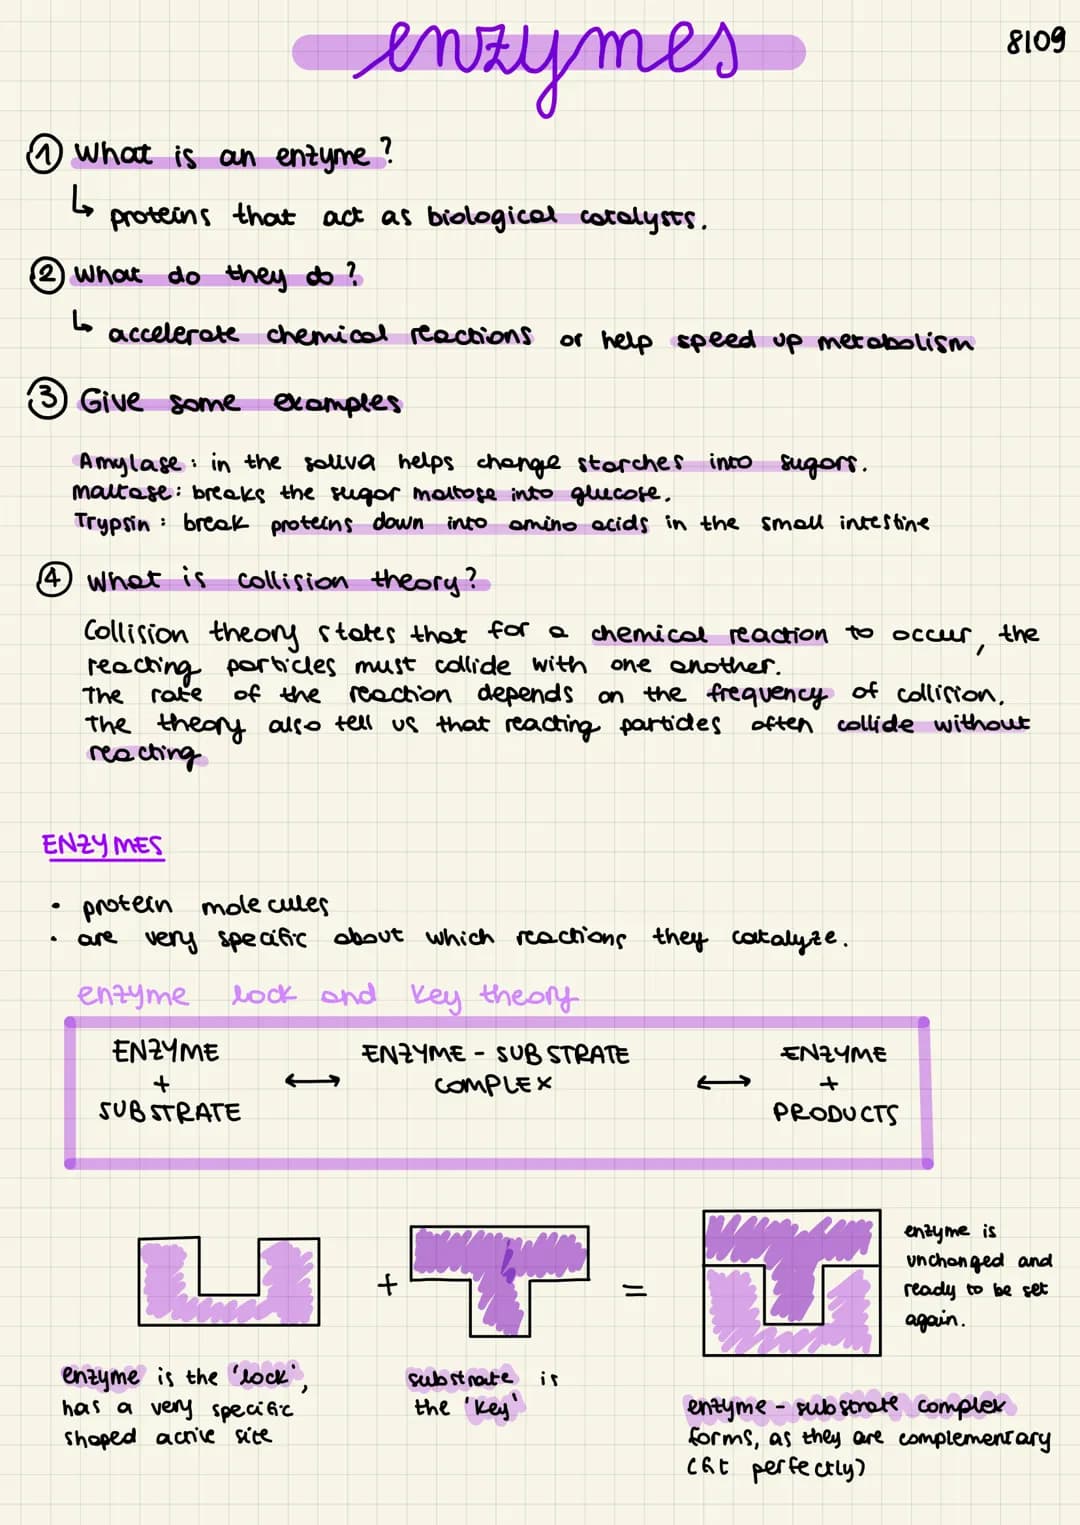 enzymes
8109
① What is an enzyme?
↳ proteins that act as biological catalysts.
② What do they do?
↳ accelerate chemical reactions or help speed up metabolism
③ Give some examples
Amylase: in the saliva helps change starches into sugars.
maltase: breaks the sugar maltose into glucose.
Trypsin: break proteins down into amino acids in the small intestine
④ What is collision theory?
Collision theory states that for a chemical reaction to occur, the
reacting particles must collide with one another.
The rate of the reaction depends on the frequency of collision.
The theory also tell us that reacting particles often collide without
reacting
ENZYMES
• protein molecules
• are very specific about which reactions they catalyze.
enzyme lock and key theory
ENZYME ENZYME - SUBSTRATE ENZYME
+ ⟷ COMPLEX ⟷ +
SUBSTRATE PRODUCTS
+ =
enzyme is
unchanged and
ready to be set
again.
enzyme is the 'lock',
has a very specific
shaped active site
substrate is
the 'key'
enzyme - substrate complex
forms, as they are complementary
(fit perfectly)